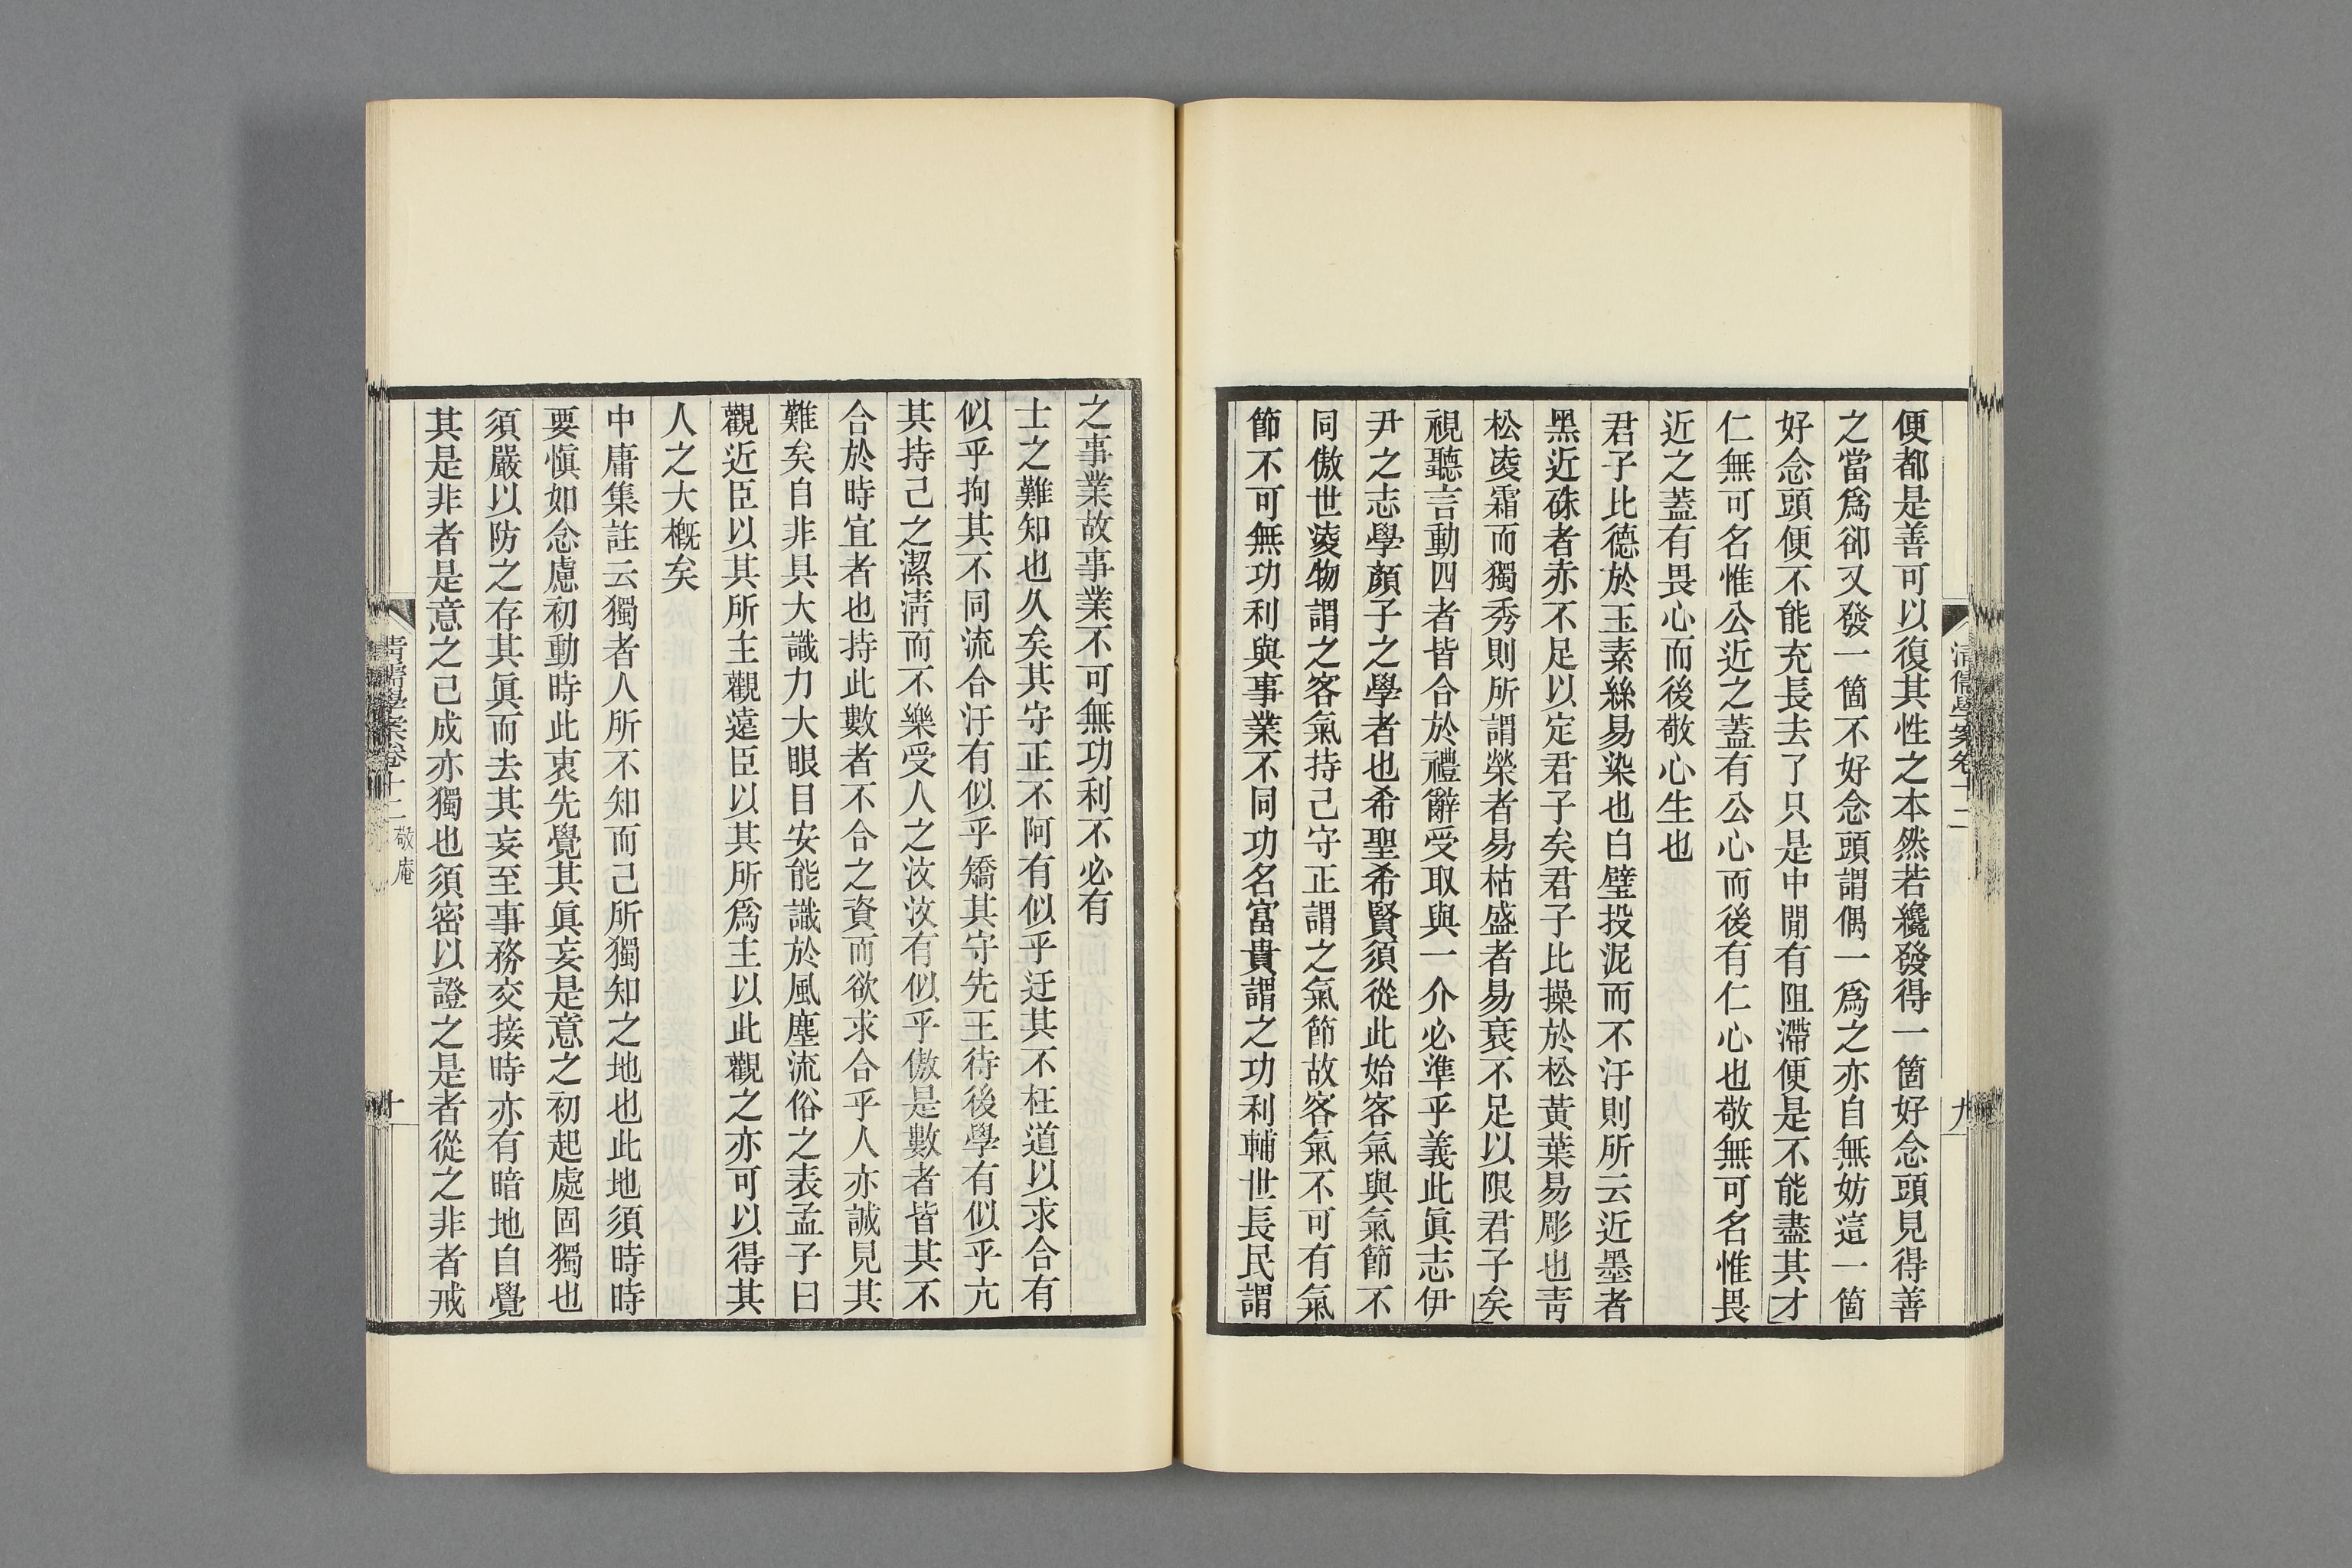 便都是善可以復其性之本然若纔發得一箇好念頭見得善
之當爲卻又發一箇不好念頭謂偶一爲之亦自無妨這一箇
好念頭便不能充長去了只是中閒有阻滯便是不能盡其才
仁無可名惟公近之蓋有公心而後有仁心也敬無可名惟畏
近之蓋有畏心而後敬心生也
君子比德於玉素絲易染也白璧投泥而不汙則所云近墨者
黑近硃者赤不足以定君子矣君子比操於松黃葉易彫也靑
松凌霜而獨秀則所謂榮者易枯盛者易衰不足以限君子矣
視聽言動四者皆合於禮辭受取與一介必準乎義此眞志伊
尹之志學顏子之學者也希聖希賢須從此始客氣與氣節不
同傲世淩物謂之客氣持己守正謂之氣節故客氣不可有氣
節不可無功利與事業不同功名富貴謂之功利輔世長民謂
清儒學案卷十二
九
之事業故事業不可無功利不必有
士之難知也久矣其守正不阿有似乎迂其不枉道以求合有
似乎拘其不同流合汙有似乎矯其守先王待後學有似乎亢
其持己之潔淸而不樂受人之汶汶有似乎傲是數者皆其不
合於時宜者也持此數者不合之資而欲求合乎人亦誠見其
難矣自非具大識力大眼目安能識於風塵流俗之表孟子曰
觀近臣以其所爲主觀遠臣以其所主以此觀之亦可以得其
人之大槪矣
中庸集註云獨者人所不知而己所獨知之地也此地須時時
要愼如念慮初動時此衷先覺其眞妄是意之初起處固獨也
須嚴以防之存其眞而去其妄至事務交接時亦有暗地自覺
其是非者是意之已成亦獨也須密以證之是者從之非者戒
清儒學案卷十二 敬庵
十